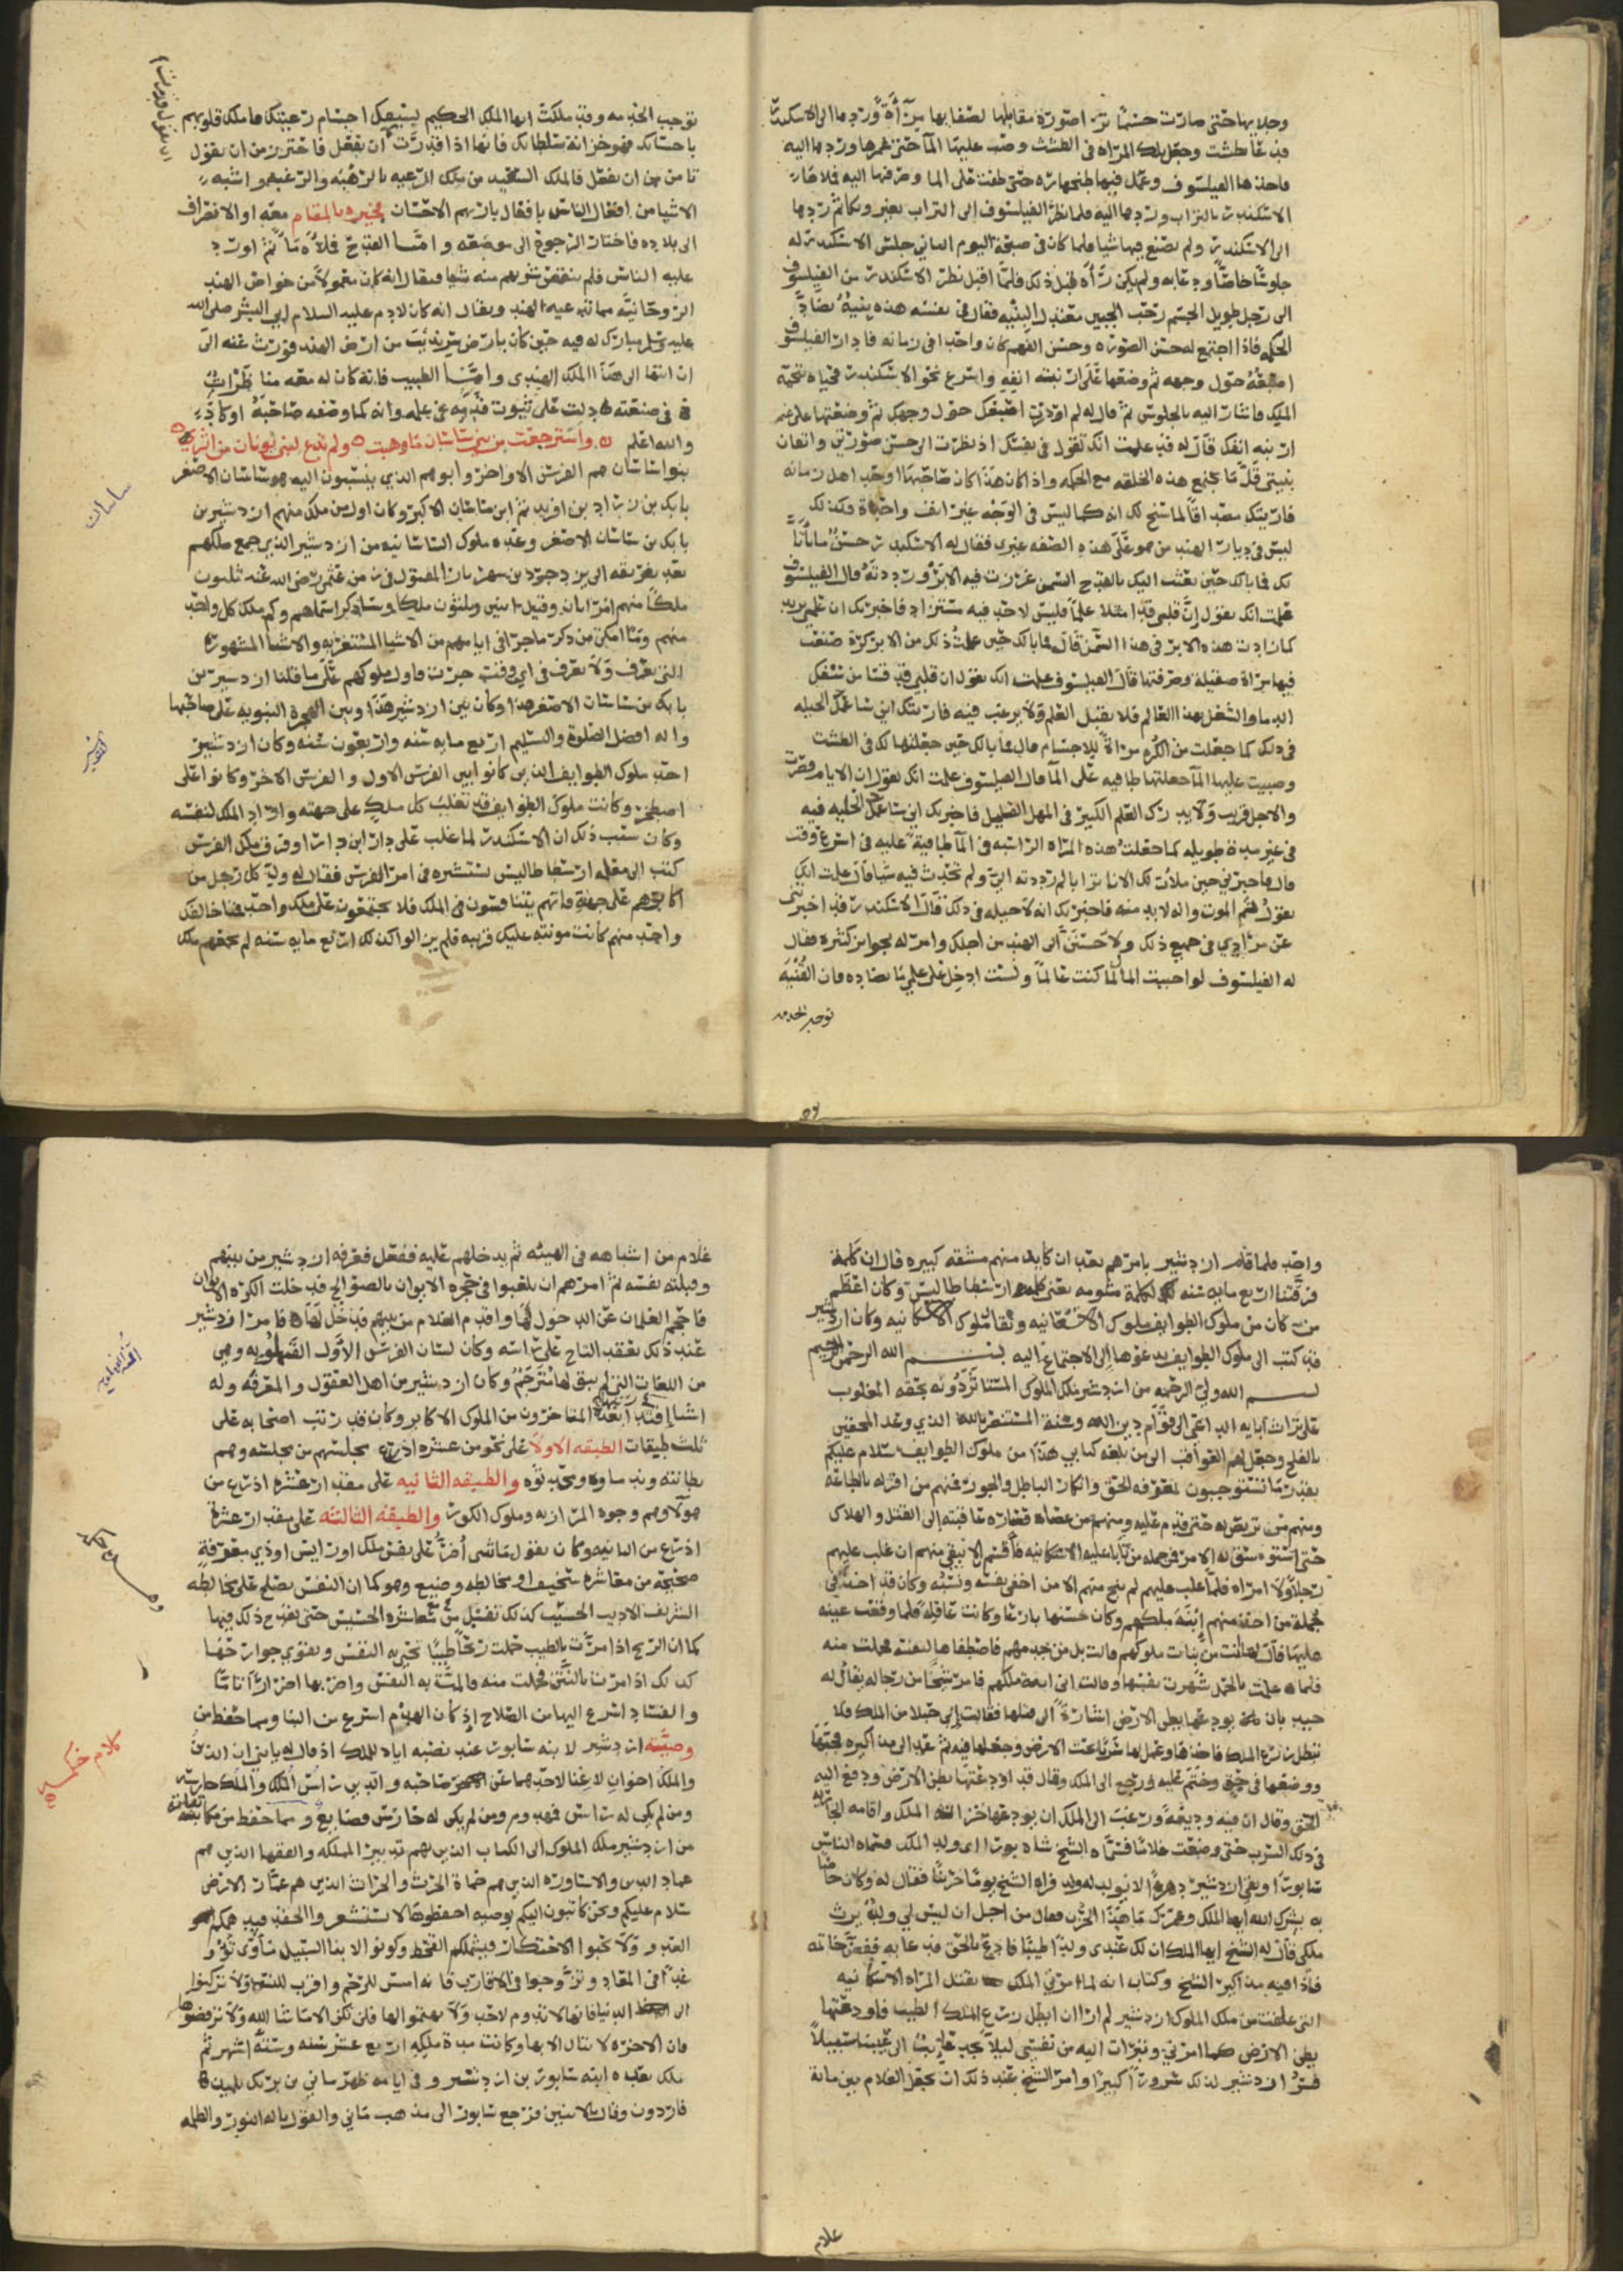 وجلابها حتى صارت جسما ترد صورة مقابلها لصفايها مرآة وردها الى الاسكندر
فدعا بطشت وجعل تلك المراه فى الطشت وصب عليها الما حتى غمرها وردها اليه
فاخذها الفيلسوف وعمل فيها طنجهاره حتى طفت على الما وصرفها اليه فلاها
الاسكندر بالتراب وردها اليه فلما نظر الفيلسوف الى التراب تغير وبكا ثم ردها
الى الاسكندر ولم يصنع فيها شيا فلما كان فى صبحة اليوم الثاني جلس الاسكندر له
جلوسا خاصا ودعا به ولم يكن رآه قبل ذلك فلما اقبل نظر الاسكندر من الفيلسوف
الى رجل طويل الجسم رحب الجبين معتدل البنيه فقال فى نفسه هذه بنية تضاد
الحكمه فاذا اجتمع له حسن الصوره وحسن الفهم كان واحدا فى زمانه فادار الفيلسوف
اصبعه حول وجهه ثم وضعها على ارنبة انفه واسرع نحو الاسكندر فحياه بتحية
الملك فاشار اليه بالجلوس ثم قال له لم ادرت اصبعك حول وجهك ثم وضعتها على
ارنبة انفك قال له قد علمت انك تقول فى نفسك اذ نظرت الى حسن صورتي واتقان
بنيتي قل ما تجتمع هذه الخلقه مع الحكمه واذا كان هذا كان صاحبها اوحد اهل زمانه
فاريتك مصداقا لما سنح لك انه كما ليس فى الوجه غير انف واحد فكذلك
ليس فى ديار الهند من هو على هذه الصفه غيري فقال له الاسكندر حسن ما تأتا
لك فما بالك حين بعثت اليك بالقدح السمن غرزت فيه الابر ورددته قال الفيلسوف
علمت انك تقول ان قلبي قد امتلا علما فليس لاحد فيه مستزاد فاخبرتك ان علمي يزيد
كما زادت هذه الابر فى هذا السمن قال فما بالك حين عملت لك من الابر كرة صنعت
فيها مراة صقيله وصرفتها قال الفيلسوف علمت انك تقول ان قلبي قد قسا من سفك
الدما والشغل بهذا العالم فلا يقبل العلم ولا يرغب فيه فاريتك اني ساعمل الحيله
فى ذلك كما جعلت من الكره مراة للاجسام قال فما بالك حين جعلتها لك فى الطشت
وصببت عليها الما جعلتها طافيه على الما قال الفيلسوف علمت انك تقول ان الايام قصرت
والاجل قريب ولا يدرك العلم الكبير فى المهل القليل فاخبرتك اني ساعمل الحيله فيه
فى غير مدة طويله كما جعلت هذه المراه الراسبه فى الما طافية عليه فى اسرع وقت
قال فاخبرني حين ملأت لك الانا ترابا لم رددته الي ولم تحدث فيه شيا قال علمت انك
تقول ثم الموت وانه لا بد منه فاخبرتك انه لا حيله فى ذلك قال الاسكندر قد اخبرتني
عن مرادي فى جميع ذلك ولاحسنن الى الهند من اجلك وامر له بجوايز كثيره فقال
له الفيلسوف لو احببت المال لما كنت عالما ولست ادخل على علمي ما يضاده فان القنية
توجب الخدمه
توجب الخدمه وقد ملكت ايها الملك الحكيم بسيفك اجسام رعيتك فاملك قلوبهم
باحسانك فهو خزانة سلطانك فانها اذا قدرت ان تقول قدرت ان تفعل فاحترز من ان تقول
تامن من ان تفعل فالملك السعيد من ملك الرعيه بالرغبه والرهبه واشبه
الاشيا من افعال الناس بافعال باريهم الاحسان فخيره بالمقام معه او الانصراف
الى بلاده فاختار الرجوع الى موضعه واما القدح فملأه ما ثم اورد
عليه الناس فلم ينقص شربهم منه شيا فيقال انه كان معمولا من خواص الهند
الروحانيه مما تدعيه الهند ويقال انه كان لادم عليه السلام ابي البشر صلى الله
عليه وسلم مبارك له فيه حين كان بارض سرنديب من ارض الهند فورث عنه الى
ان انتها الى هذا الملك الهندي واما الطبيب فانه كان له معه مناظرات
فى صنعته دلت على ثبوت قدمه فى علمه وانه كما وصفه صاحبه او كاد
والله اعلم واسترجعت من بني ساسان ما وهبت ولم تدع لبني يونان من اثر
بنوا ساسان هم الفرس الاواخر وابوهم الذي ينتسبون اليه هو ساسان الاصغر
بابك بن زراد بن افريد ثم ابن ساسان الاكبر وكان اول من ملك منهم اردشير بن
بابك بن ساسان الاصغر وعده ملوك الساسانيه من اردشير الذي جمع ملكهم
بعد تفرقه الى يزدجرد بن شهريار المقتول فى زمن عثمن رضى الله عنه ثلثون
ملكا منهم امراتان وقيل اثنين وثلثون ملكا وساذكر اسماهم وكم ملك كل واحد
منهم وما امكن من ذكر ما جرا فى ايامهم من الاشيا المستغربه والاشيا المشهوره
التى تعرف ولا يعرف فى اي وقت جرت فاول ملوكهم على ما قلنا اردشير بن
بابك بن ساسان الاصغر هذا وكان بين اردشير هذا وبين الهجرة النبويه على صاحبها
واله افضل الصلوة والتسليم اربع مايه سنه واربعون سنه وكان اردشير
احد ملوك الطوايف الذين كانوا بين الفرس الاول والفرس الاخر وكانوا على
اصطخر وكانت ملوك الطوايف قد تغلب كل ملك على جهته واراد الملك لنفسه
وكان سبب ذلك ان الاسكندر لما غلب على دارا ابن دارا وفرق ملك الفرس
كتب الى معلمه ارسطاطاليس يستشيره فى امر الفرس فقال له ول كل رجل من
اكابرهم على جهة فانهم يتنافسون فى الملك فلا يجتمعون على ملك واحد فمتا خالفك
واحد منهم كانت مونته عليك قريبه فلم يزالوا كذلك اربع مايه سنه لم يجمعهم ملك
ساسان
واحد فلما قام اردشير بامرهم بعد ان كابد منهم مشقه كبيره قال ان كلمة
فرقتنا اربع مايه سنه لكلمة مشومه يعني كلمة ارسطاطاليس وكان اعظم
من كان من ملوك الطوايف ملوك الاشغانيه ويقال ملوك الاشكانيه وكان اردشير
قد كتب الى ملوك الطوايف يدعوها الى الاجتماع اليه بسم الله الرحمن الرحيم
بسم الله ولي الرحمه من اردشير ملك الملوك المستاثر دونه بحقه المغلوب
على تراث آبايه الداعي الى قوام دين الله وسنة المستنصر بالله الذي وعد المحقين
بالفلح وجعل لهم العواقب الى من بلغه كتابي هذا من ملوك الطوايف سلام عليكم
بقدر ما تستوجبون لمعرفه الحق وانكار الباطل والجور فمنهم من اقر له بالطاعة
ومنهم من تربص به حتى قدم عليه ومنهم من عصاه فصارت عاقبته الى القتل والهلاك
حتى استوسق له الامر فمن جمله من تابا عليه الاشكانيه فاقسم لا يبقي منهم ان غلب عليهم
رجلا ولا امراه فلما غلب عليهم لم ينج منهم الا من اخفى نفسه ونسبه وكان قد اخذ فى
جملة من اخذ منهم ابنة ملكهم وكان حسنها بارعا وكانت عاقله فلما وقعت عينه
عليها قال انت من بنات ملوكهم قالت بل من خدمهم فاصطفاها لنفسه فحملت منه
فلما علمت بالحمل شهرت نفسها وقالت اني ابنة ملكهم فامر شيخا من رجاله يقال له
بان يودعها بطن الارض اشارة الى قتلها فقالت اني حبلا من الملك فلا
تبطل زرع الملك فاخذها وعمل لها سربا تحت الارض وجعلها فيه ثم عمد الى مذاكيره فجبها
ووضعها فى حق وختم عليه ورجع الى الملك وقال قد اودعتها بطن الارض ودفع اليه
الحق وقال ان فيه وديعة ورغب الى الملك ان يودعها خزاين الملك واقامه الجاريه
فى ذلك السرب حتى وضعت غلاما فسماه الشيخ شاه بور اي ولد الملك فسماه الناس
سابورا وبقي اردشير دهرا لا يولد له ولد فراه الشيخ يوما حزينا فقال له وكان خاصا
به سرك الله ايها الملك وعمرك ما هذا الحزن فقال من اجل ان ليس لي ولد يرث
ملكي فقال له الشيخ ايها الملك ان لك عندي ولدا طيبا فادع بالحق فدعا به ففض خاتمه
فاذا فيه مذاكير الشيخ وكتاب انه لما امرني الملك بقتل المراه الاشكانيه
التى علقت من ملك الملوك اردشير لم ار ان ابطل زرع الملك الطيب فاودعتها
بطن الارض كما امرني وتبرات اليه من نفسي ليلا يجد عايب الى عيبنا سبيلا
فسر اردشير لذلك سرورا كبيرا وامر الشيخ عند ذلك ان يجعل الغلام بين ماية
غلام
غلام من اشباهه فى الهيئه ثم يدخلهم عليه ففعل فعرفه اردشير من بينهم
وقبلته نفسه ثم امرهم ان يلعبوا فى حجره الايوان بالصوالج فدخلت الكره الايوان
فاحجم الغلمان عن الدخول لها واقدم الغلام من بينهم فدخل لها فامر اردشير
عند ذلك بعقد التاج على راسه وكان لسان الفرس الاول الفهلويه وهي
من اللغات التي لم يبق لها مترجم وكان اردشير من اهل العقول والمعرفه وله
اشيا اقتدا بعده المتاخرون من الملوك الاكابر وكان قد رتب اصحابه على
ثلث طبقات الطبقه الاولا على نحو من عشره اذرع مجلسهم من مجلسه وهم
بطانته وندماوه ومحدثوه والطبقه الثانيه على مقدار عشره اذرع من
هولا وهم وجوه المرازبه وملوك الكور والطبقه الثالثه على مقدار عشرة
اذرع من الثانيه وكان يقول ما شى اضر على نفس ملك او رايس او ذي معرفة
صحيحة من معاشرة سخيف او مخالطه وضيع وهو كما ان النفس تصلح على مخالطه
الشريف الاديب الحسيب كذلك تفسد من معاشرة الخسيس حتى يقدح ذلك فيها
كما ان الريح اذا مرت بالطيب حملت ريحا طيبا تحيى به النفس وتقوي جوارحها
كذلك اذا مرت بالنتن فحملت منه فالمت به النفس واضر بها اضرارا تاما
والفساد اسرع اليها من الصلاح اذ كان الهدم اسرع من البنا ومما حفظ من
وصية اردشير لابنه سابور عند نصبه اياه للملك اذ قال له يا بني ان الدين
والملك اخوان لا غنا لاحدهما عن صاحبه والدين اس الملك والملك حارسه
ومن لم يكن له اس فهدوم ومن لم يكن له حارس فضايع ومما حفظ من مكاتباته
من اردشير ملك الملوك الى الكتاب الذين لهم تدبير المملكه والفقها الذين هم
عماد الدين والاساوره الذين هم حماة الحرث والحراث الذين هم عمار الارض
سلام عليكم ونحن كاتبون اليكم بوصيه احفظوها لا تستشعروا الحقد فيدهمكم
العدو ولا تحبوا الاحتكار فيشملكم القحط وكونوا لابنا السبيل ماوى تؤوو
غدا فى المعاد وتزوجوا فى الاقارب فانه امس للرحم واقرب للنسب ولا تركنوا
الى الدنيا فانها لا تدوم لاحد ولا تهتموا لها فلن تكن الا ما شا الله ولا ترفضوها
فان الاخره لا تنال الا بها وكانت مدة ملكه اربع عشر سنه وستة اشهر ثم
ملك بعده ابنه سابور بن اردشير وفى ايامه ظهر ماني بن يزيد تلميذ
قاردون وقال بالاثنين فرجع سابور الى مذهب ماني والقول بالنور والظلمه